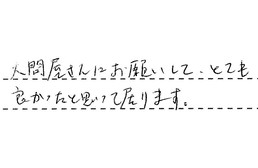 人問屋さんにお願いして、とても
良かったと思って居ります。